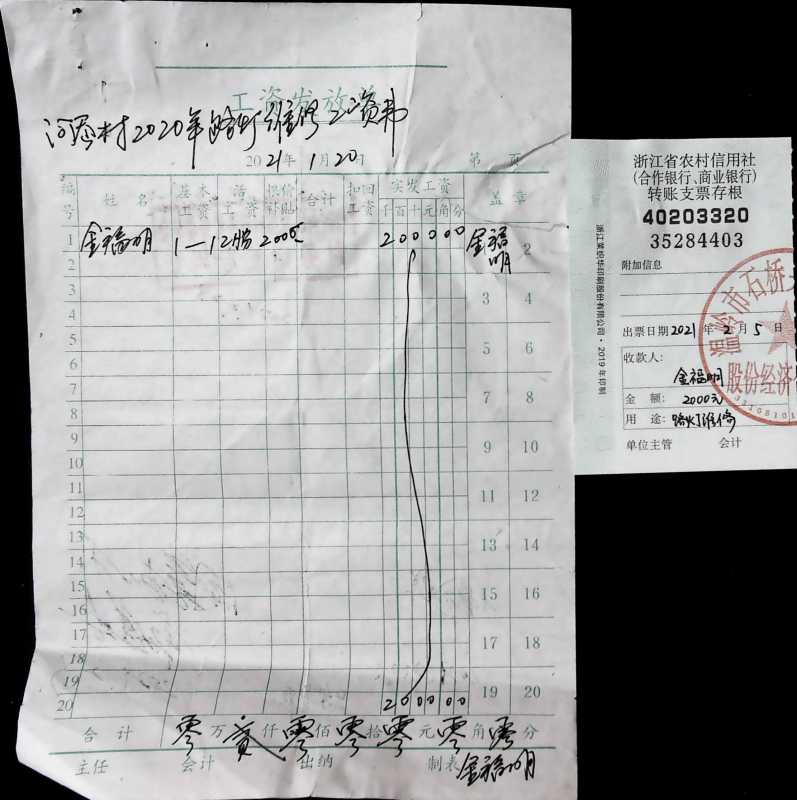 工资发放单
河岙村2020年路灯维修工资弗
2021年1月20日
第 页
编号 姓名 基本工资 活工资 粮价补贴 合计 扣回工资 实发工资 千百十元角分 盖章
1 金福明 1—12月 2000元 200000 金福明 2
2
3 3 4
4
5 5 6
6
7 7 8
8
9 9 10
10
11 11 12
12
13 13 14
14
15 15 16
16
17 17 18
18
19 19 20
20 200000
合计 零万贰仟零佰零拾零元零角零分
主任 会计 出纳 制表 金福明
浙江省农村信用社
(合作银行、商业银行)
转账支票存根
40203320
35284403
附加信息
出票日期 2021年2月5日
收款人:
金福明
金额: 2000元
用途: 路灯维修
单位主管 会计
温岭市石桥
股份经济